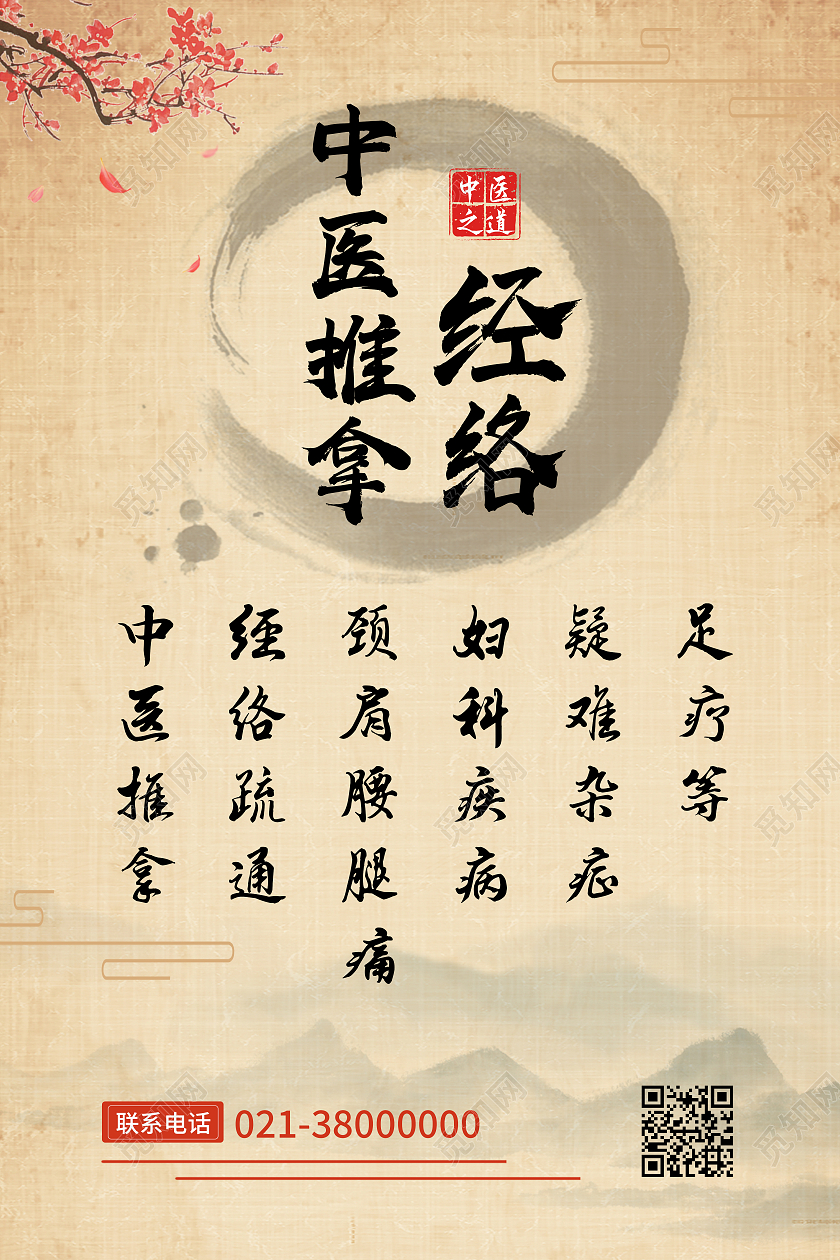 中医推拿
中医
之道
经络
中医推拿
经络疏通
颈肩腰腿痛
妇科疾病
疑难杂症
足疗等
联系电话 021-38000000
觅知网